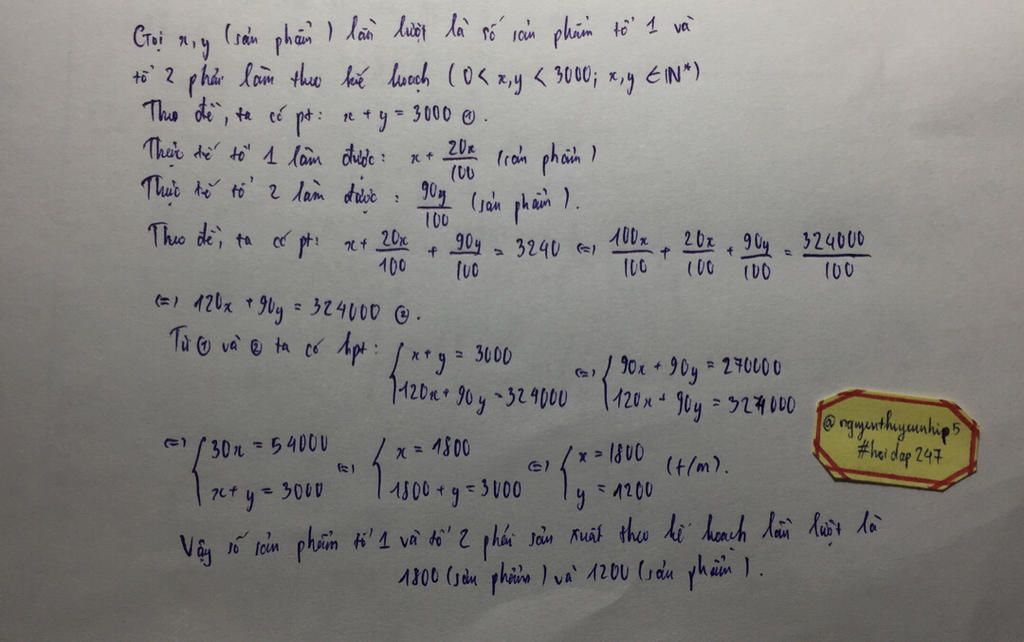 Gọi x,y (sản phẩm) lần lượt là số sản phẩm tổ 1 và
tổ 2 phải làm theo kế hoạch (0 < x,y < 3000; x,y ∈ IN*)
Theo đề, ta có pt: x + y = 3000 ①.
Thực tế tổ 1 làm được: x + 20x/100 (sản phẩm)
Thực tế tổ 2 làm được: 90y/100 (sản phẩm).
Theo đề, ta có pt: x + 20x/100 + 90y/100 = 3240 <=> 100x/100 + 20x/100 + 90y/100 = 324000/100
<=> 120x + 90y = 324000 ②.
Từ ① và ② ta có hpt: { x + y = 3000 ; 120x + 90y = 324000 <=> { 90x + 90y = 270000 ; 120x + 90y = 324000
<=> { 30x = 54000 ; x + y = 3000 <=> { x = 1800 ; 1800 + y = 3000 <=> { x = 1800 ; y = 1200 (t/m).
Vậy số sản phẩm tổ 1 và tổ 2 phải sản xuất theo kế hoạch lần lượt là
1800 (sản phẩm) và 1200 (sản phẩm).
@nguyenthuyeunhip5
#hoidap247